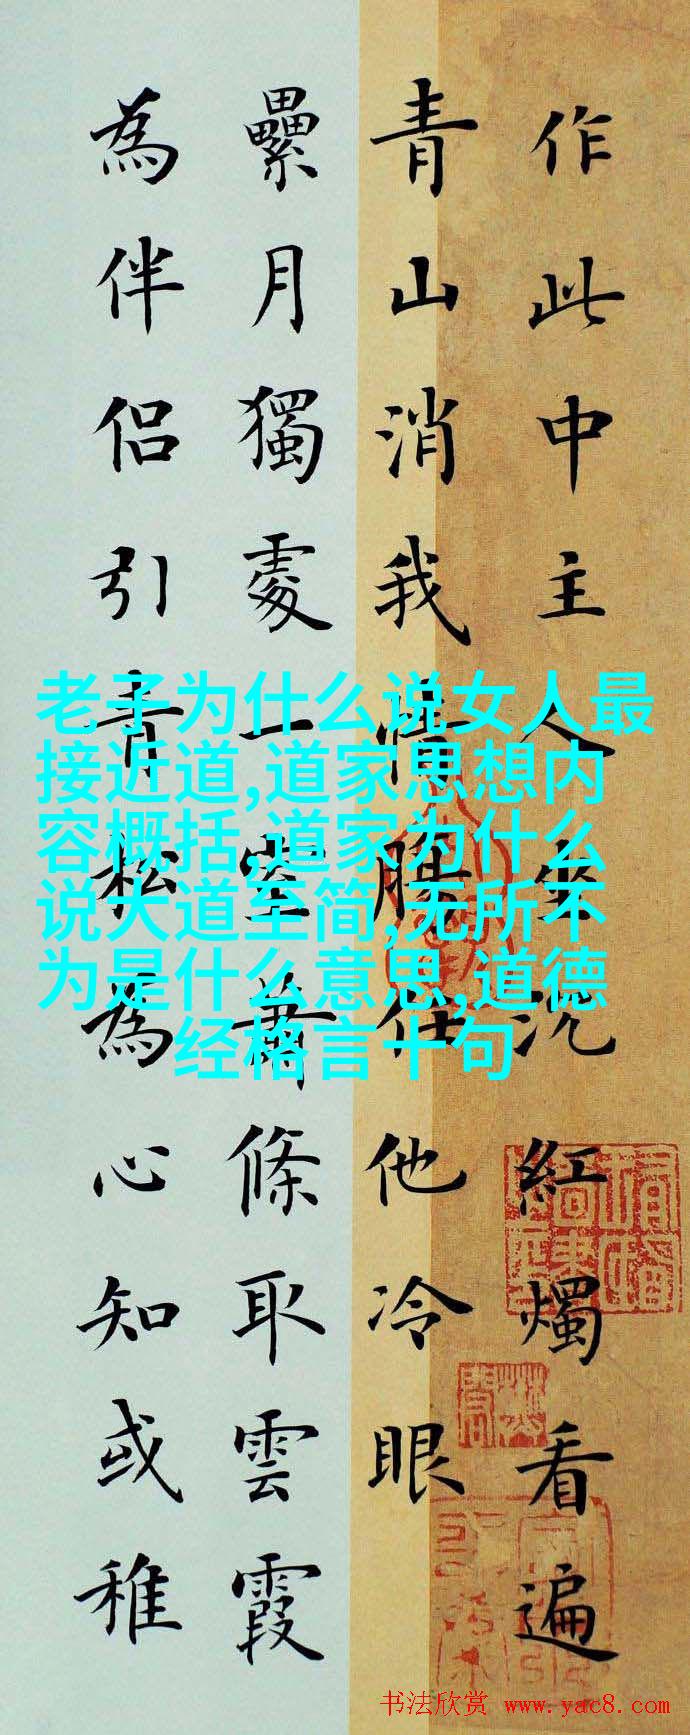 作此中主人坐沉紅燭看遍
青山消我情腸任他冷眼
纍月獨處一室蕭條取雲霞
為伴侶引青松為心知或稚
老子为什么说女人最
接近道,道家思想内
容概括,道家为什么
说大道至简,无所不
为是什么意思,道德
经格言十句
书法欣赏 www.yac8.com